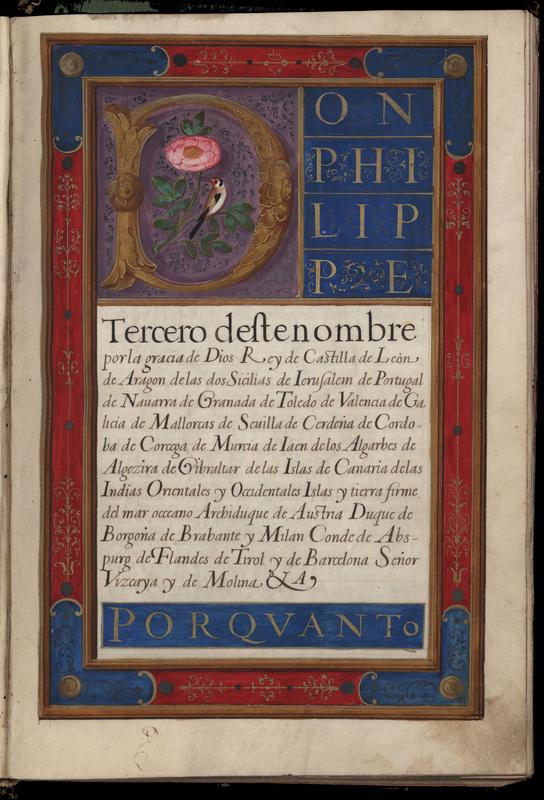 DON
PHI
LIP
PE
Tercero deste nombre
por la gracia de Dios Rey de Castilla de León
de Aragon de las dos Sicilias de Ierusalem de Portugal
de Nauarra de Granada de Toledo de Valencia de Ga
licia de Mallorcas de Seuilla de Cerdeña de Cordo-
ba de Corcega de Murcia de Iaen de los Algarbes de
Algezira de Gibraltar de las Islas de Canaria de las
Indias Orientales y Occidentales Islas y tierra firme
del mar occeano Archiduque de Austria Duque de
Borgoña de Brabante y Milan Conde de Abs-
purg de Flandes de Tirol y de Barcelona Señor
Vizcaya y de Molina &A
PORQVANTo